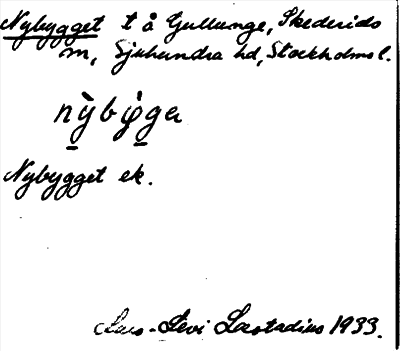 Nybygget t å Gullunge, Skederids
sn, Sjuhundra hd, Stockholms l.
nỳ̱bφ̀g̱a
Nybygget ek.
Lars-Levi Læstadius 1933.